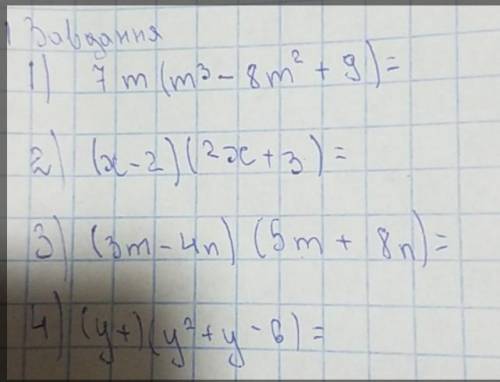 1 Завдання
1) 7m(m³ - 8m² + 9) =
2) (x - 2)(2x + 3) =
3) (3m - 4n) (5m + 8n) =
4) (y+)(y² + y - 6) =